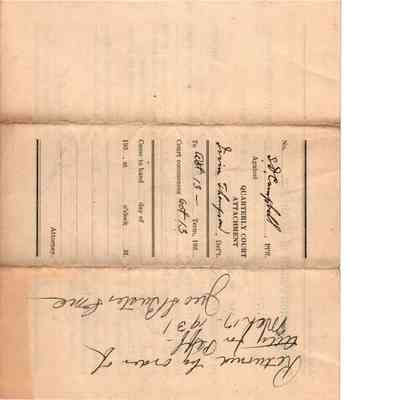 No.
S D Campbell Plff.
Against
QUARTERLY COURT
ATTACHMENT
Irvin Thompson Def't.
To Oct 13 - Term, 192
Court commences Oct 13
Came to hand day of
192 at o'clock M.
Attorney.
Returned by order of
atty for Plff.
Mch 17-1931